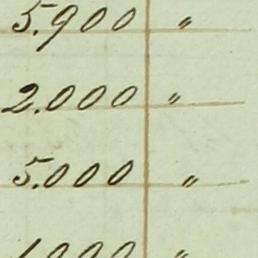 5.900 "
2.000 "
5.000 "